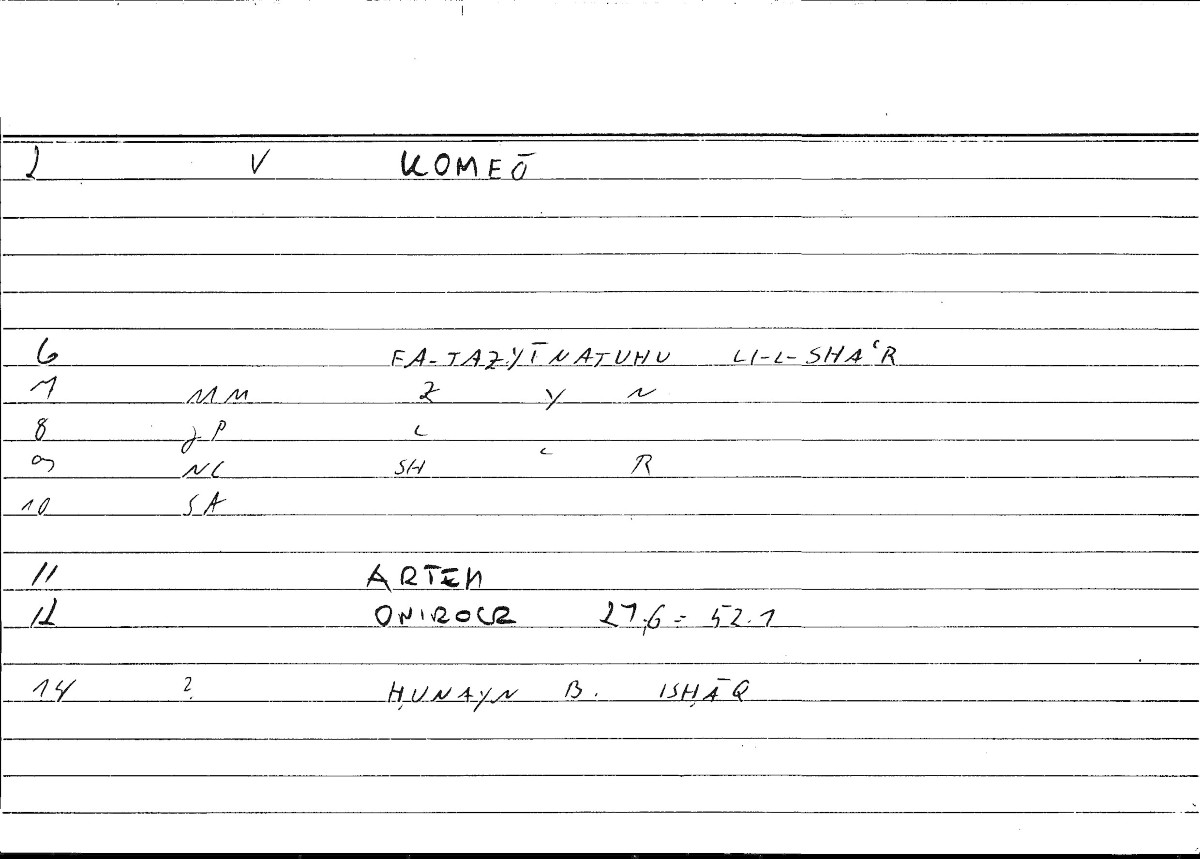 2 V KOMEŌ
6 FA-TAZYĪNATUHU LI-L-SHAʿR
7 MM Z Y N
8 JP L
9 NC SH ʿ R
10 SA
11 ARTEM
12 ONIROCR 27.6 = 52.1
14 ? ḤUNAYN B. ISḤĀQ